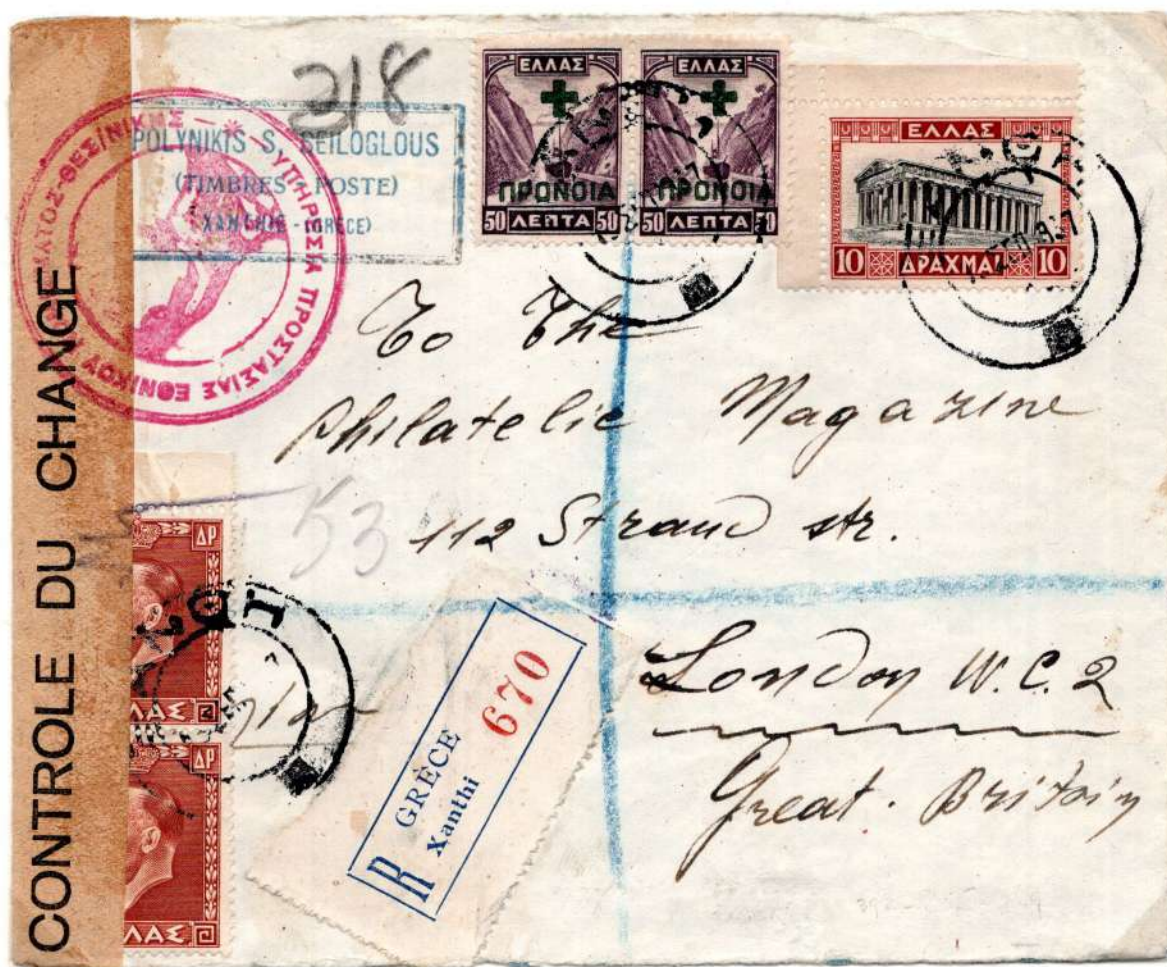 CONTROLE DU CHANGE
218
POLYNIKIS S. SEILOGLOUS
(TIMBRES - POSTE)
XANTHIE - (GRECE)
ΥΠΗΡΕΣΙΑ ΠΡΟΣΤΑΣΙΑΣ ΕΘΝΙΚΟΥ
ΘΕΣ/ΝΙΚΗΣ
ΕΛΛΑΣ
ΠΡΟΝΟΙΑ
50 ΛΕΠΤΑ 50
ΕΛΛΑΣ
ΠΡΟΝΟΙΑ
50 ΛΕΠΤΑ 50
ΕΛΛΑΣ
10 ΔΡΑΧΜΑΙ 10
To The
Philatelic Magazine
112 Strand str.
London W.C.2
Great. Britain
53
ΔΡ
ΛΑΣ
ΔΡ
ΛΑΣ
R GRÈCE
Xanthi
670